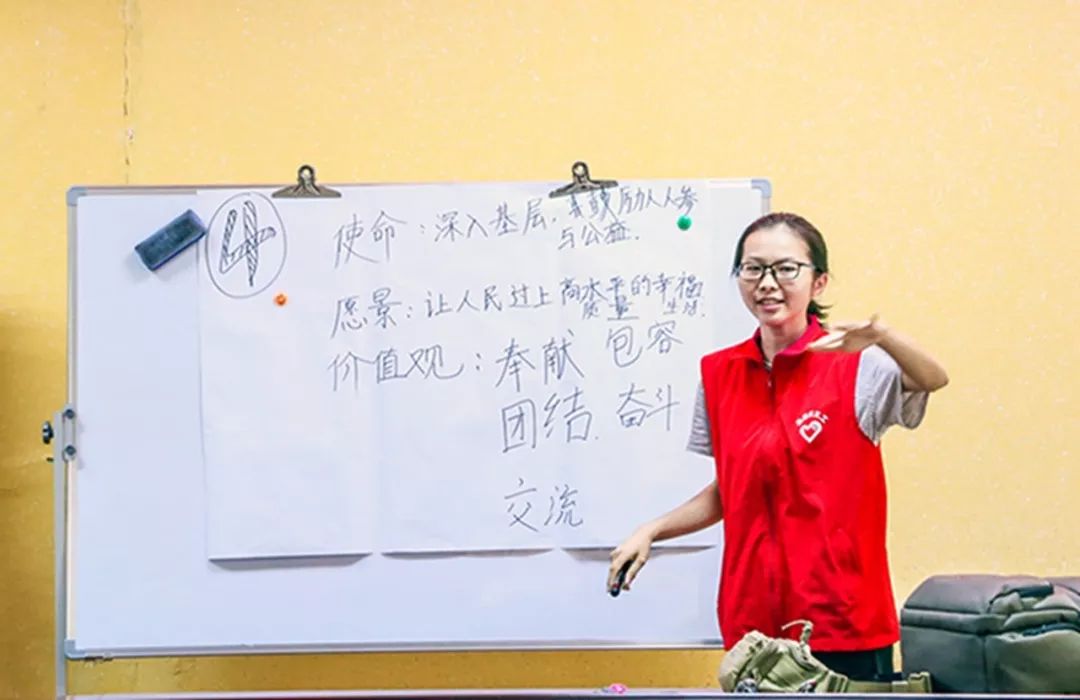 4
使命：深入基层.鼓励人人参
与公益.
愿景：让人民过上高水平的幸福
质量 生活.
价值观：奉献 包容
团结. 奋斗
交流